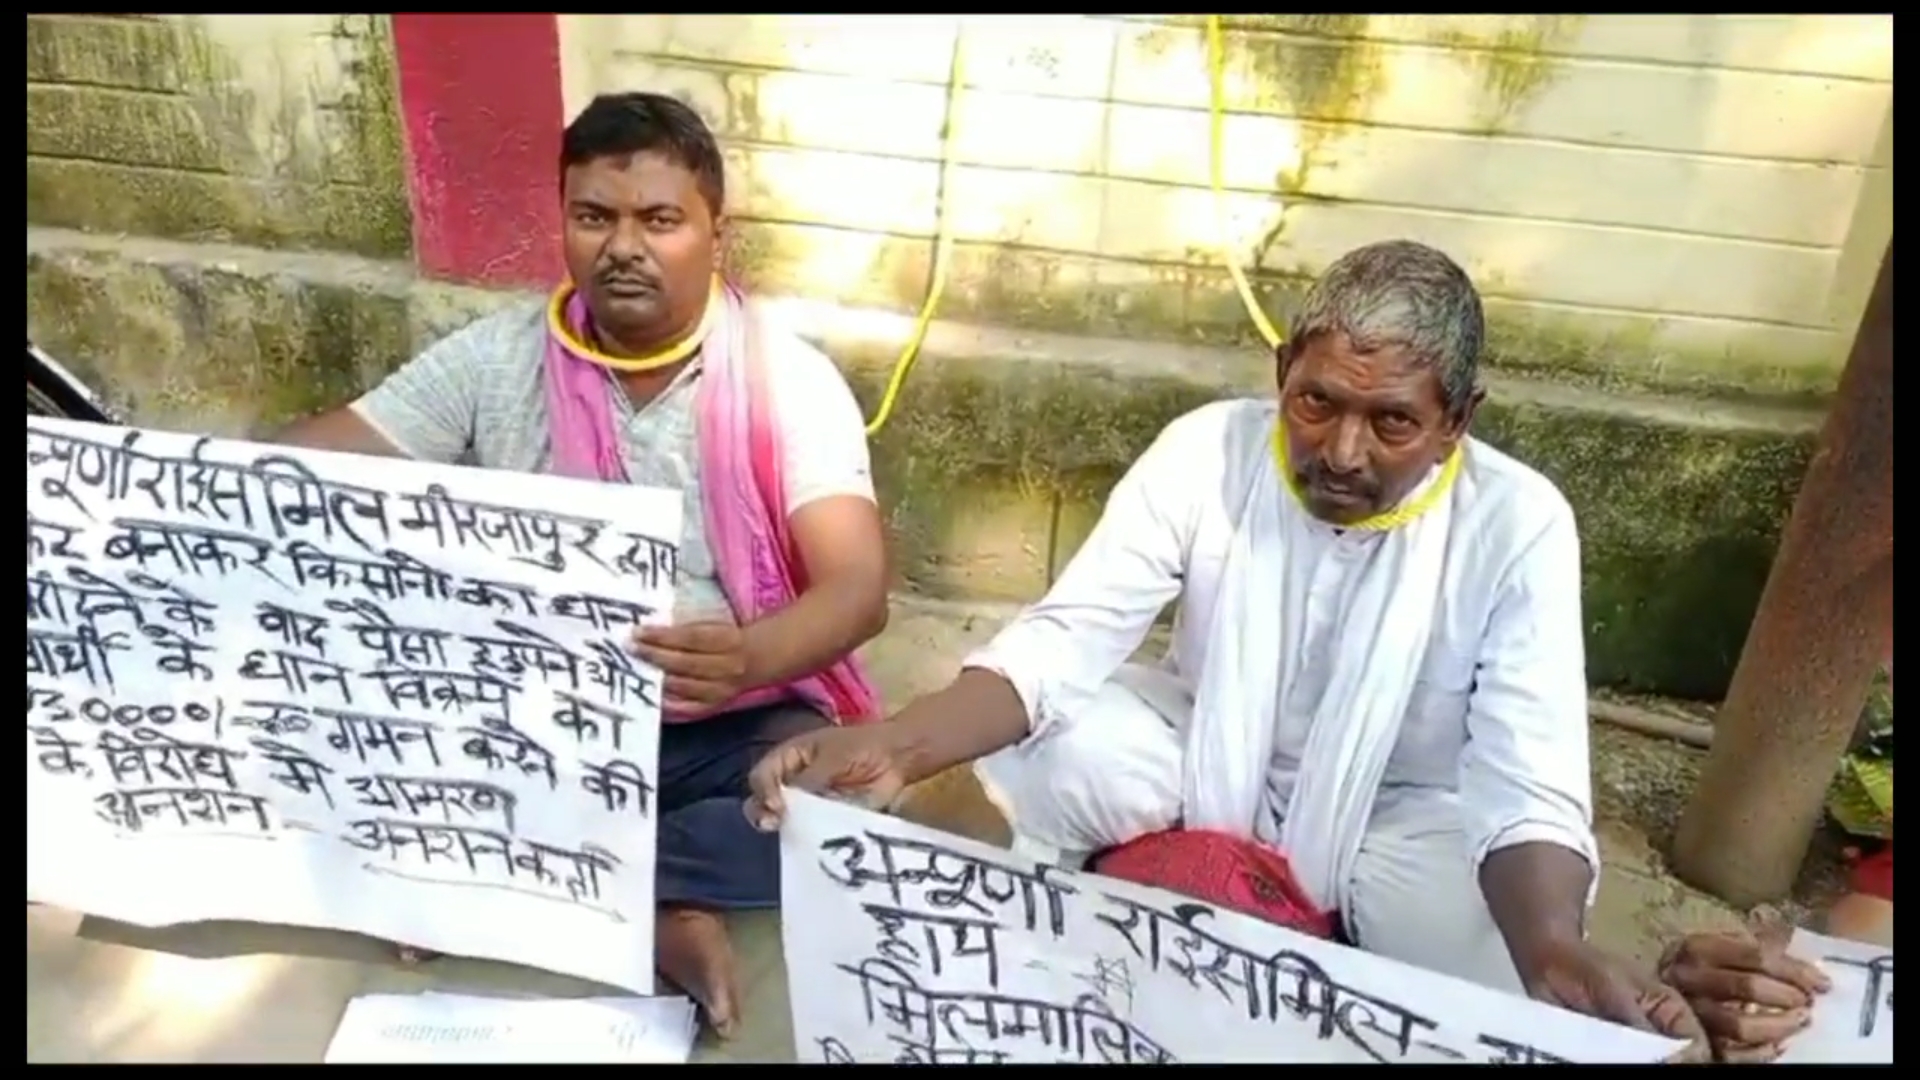 न्पूर्णा राईस मिल मीरजापुर द्वारा
कर बनाकर किसानो का धान
के बाद पैसा हड़पने और
के धान विक्रय का
30000/- रु० गमन करने की
के विरोध मे आमरण
अनशन - अनशनकर्ता
अन्पूर्णा राईस मिल -
हाय -
मिलमालिक